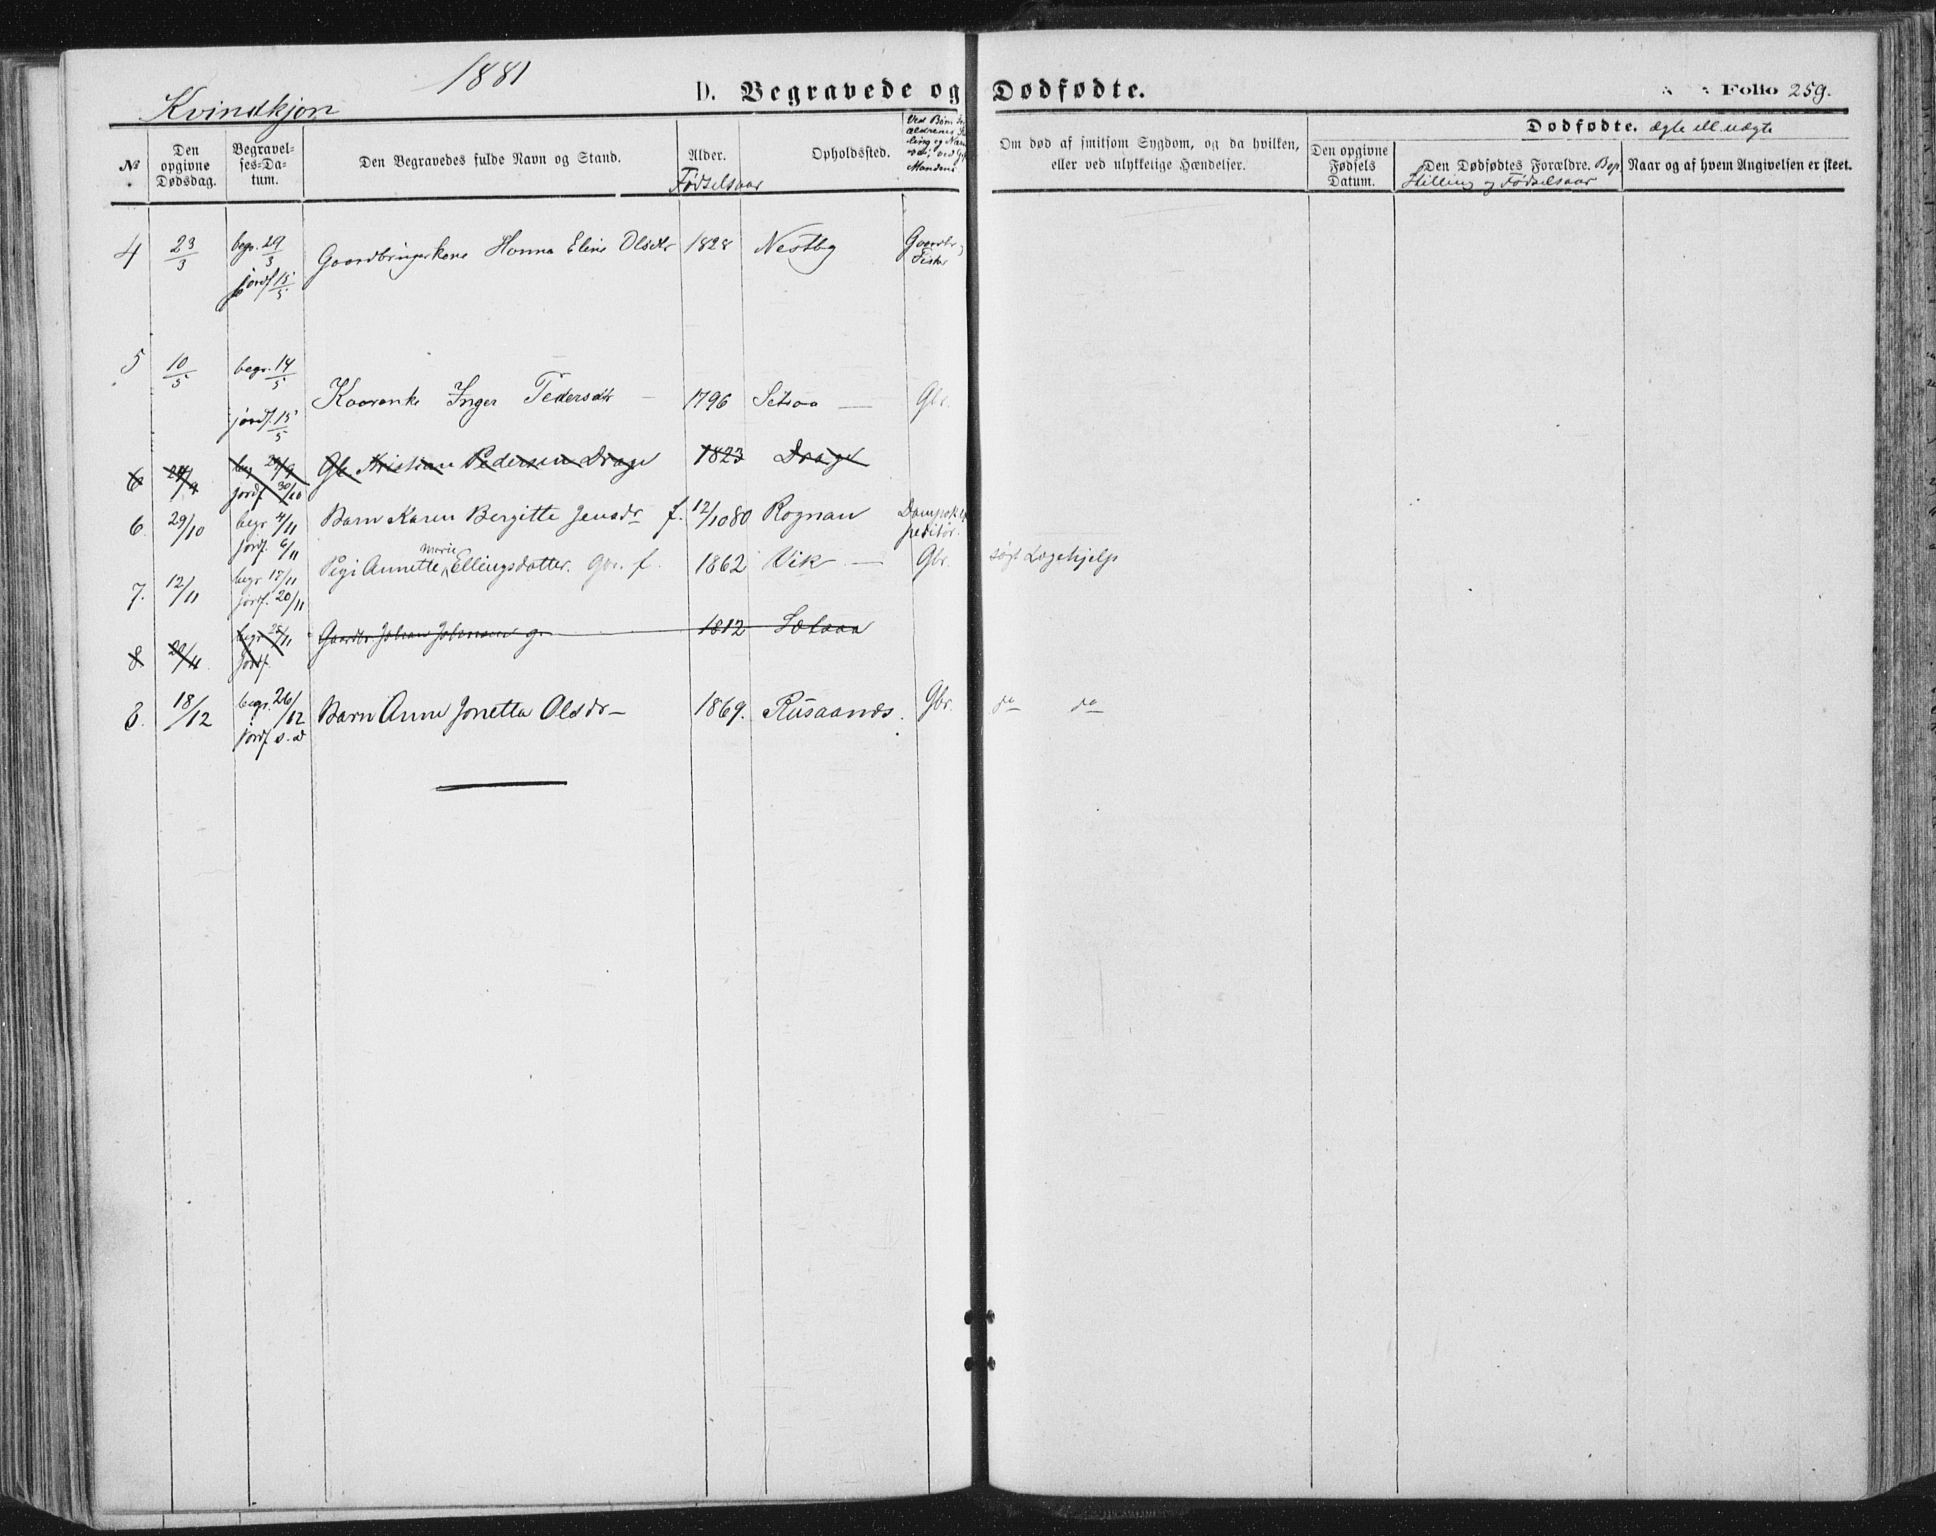 1881
Kvindkjøn
D. Begravede og Dødfødte.
Folio 259.
Dødfødte. ægte ell. uægte
№
Den opgivne Dødsdag.
Begravelses-Datum.
Den Begravedes fulde Navn og Stand.
Alder.
Fødselsaar
Opholdssted.
Ved Børn
Mandens
Om død af smitsom Sygdom, og da hvilken,
eller ved ulykkelige Hændelser.
Den opgivne Fødsels Datum.
Den Dødfødtes Forældre. Bop.
Stilling og Fødselsaar
Naar og af hvem Angivelsen er skeet.
4 23/3 begr. 29/3 Gaardbrugerkone Hanna Eline Olsdtr 1828 Nestby Gaardbr. og
jordf 15/5 Fisker
5 10/5 begr. 14/5
jordf. 15/5 Kaarenke Inger Pedersdtr 1796 Setsaa — Gbr.
6 24/9 beg 29/9 Gb Kristian Pedersen Drage 1823 Drage
jordf 30/10
6. 29/10 begr 4/11 Barn Karen Bergitte Jensdr f. 12/10 80 Rognan Dampskex
jordf. 6/11 peditør.
7. 12/11 begr 17/11 Pigi Annette Marie Ellingsdatter. Gbr. f. 1862 Vik — Gbr. søgt Lægehjelp
jordf. 20/11
8 22/11 begr 25/11 Gaardbr Johan Johansen g. 1812 Setsaa
jordf.
8. 18/12 begr. 26/12 Barn Anne Jonetta Olsdr — 1869. Rusaanes. Gbr. do do
jordf s. d